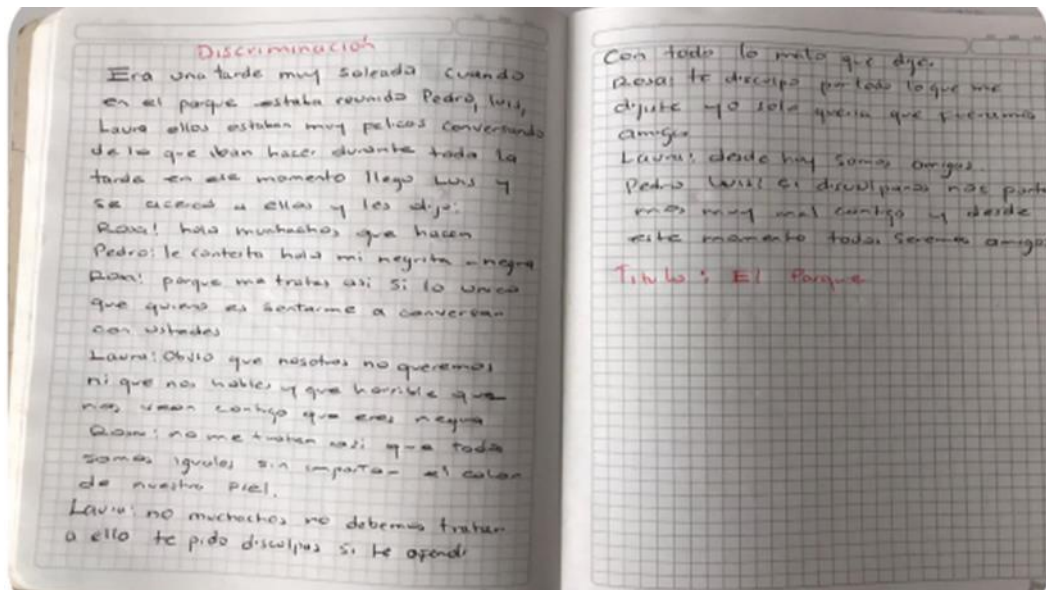 Discriminación
Era una tarde muy soleada cuando
en el parque estaba reunido Pedro, luis,
Laura ellos estaban muy conversando
de lo que iban hacer durante toda la
tarde en ese momento llego Luis y
se acerco a ellos y les dijo:
Rosa: hola muchachos que hacen
Pedro: le contesto hola mi negrita - negra
Rosa: porque me tratas asi si lo unico
que quiero es sentarme a conversar
con ustedes
Laura: Obvio que nosotros no queremos
ni que nos hables y que horrible que
nos vean contigo que eres negra
Rosa: no me traten asi que todos
somos iguales sin importar el color
de nuestra piel.
Laura: no muchachos no debemos tratar
a ello te pido disculpas si te ofendi
Con todo lo malo que dije.
Rosa: te disculpo por todo lo que me
dijiste yo solo queria que fueramos
amigos
Laura: desde hoy somos amigos.
Pedro Luis: si disculpanos nos porta
mos muy mal contigo y desde
este momento todos seremos amigos
Titulo: El Parque